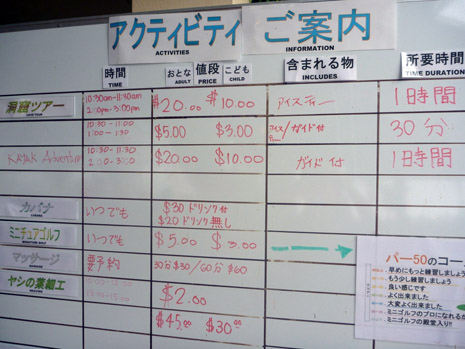 アクティビティ ご案内
ACTIVITIES INFORMATION
時間 おとな 値段 こども 含まれる物 所要時間
TIME ADULT PRICE CHILD INCLUDES TIME DURATION
洞窟ツアー 10:30am-11:30am $20.00 $10.00 アイスティー 1時間
2:00pm-3:00pm
10:30-11:00 $5.00 $3.00 アイス/ガイド付 30分
1:00-1:30
KAYAK Adventure 10:30-11:30 $20.00 $10.00 ガイド付 1時間
2:00-3:00
カバナ いつでも $30 ドリンク付
$20 ドリンク無し
ミニチュアゴルフ いつでも $5.00 $3.00
マッサージ 要予約 30分$30/60分$60
ヤシの葉細工 $2.00
$45.00 $30.00
パー50のコー
早めにもっと練習しましょう
もう少し練習しましょう
良い感じです
よく出来ました
大変よく出来ました
ミニゴルフのプロになれるか
ミニゴルフの殿堂入り!!